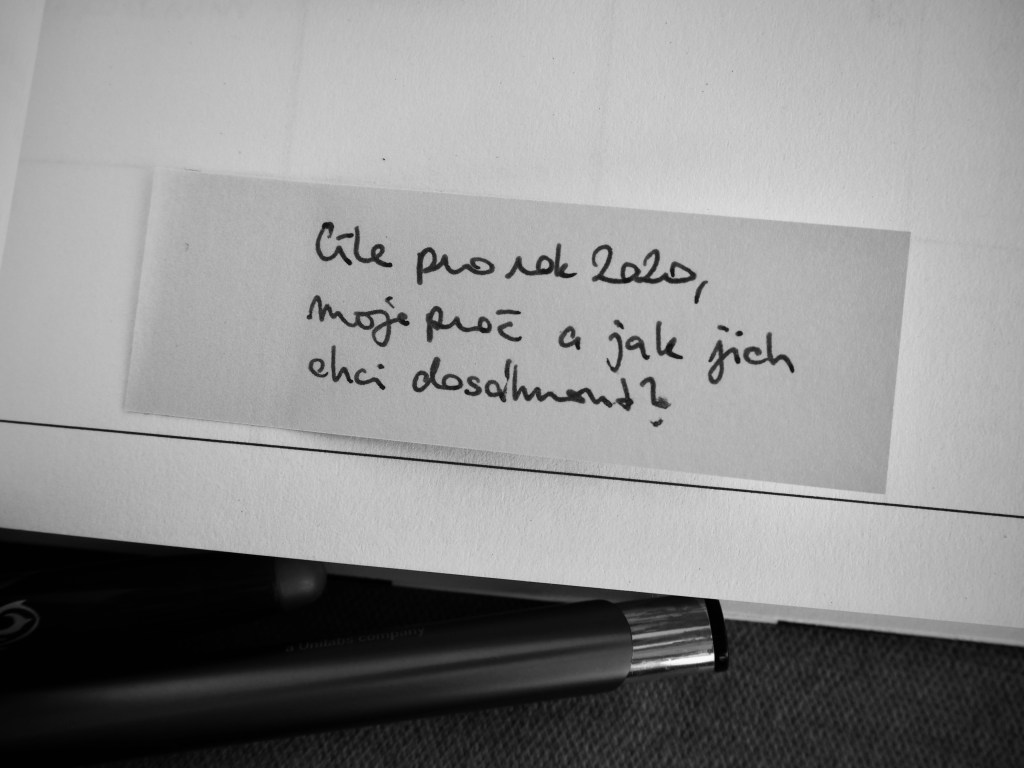 Cíle pro rok 2020,
moje proč a jak jich
chci dosáhnout?
a Unidatis company